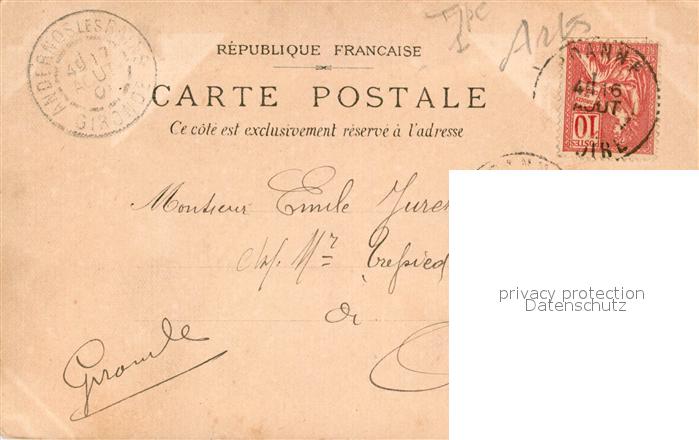 ANDERNOS LES BAINS
17
GIRONDE
Type
1
Arts
RÉPUBLIQUE FRANCAISE
CARTE POSTALE
Ce côté est exclusivement réservé à l'adresse
ANNE
16
AOUT
OIRE
10
POSTES
Monsieur Emile
chez Mr
de
Gironde
privacy protection
Datenschutz